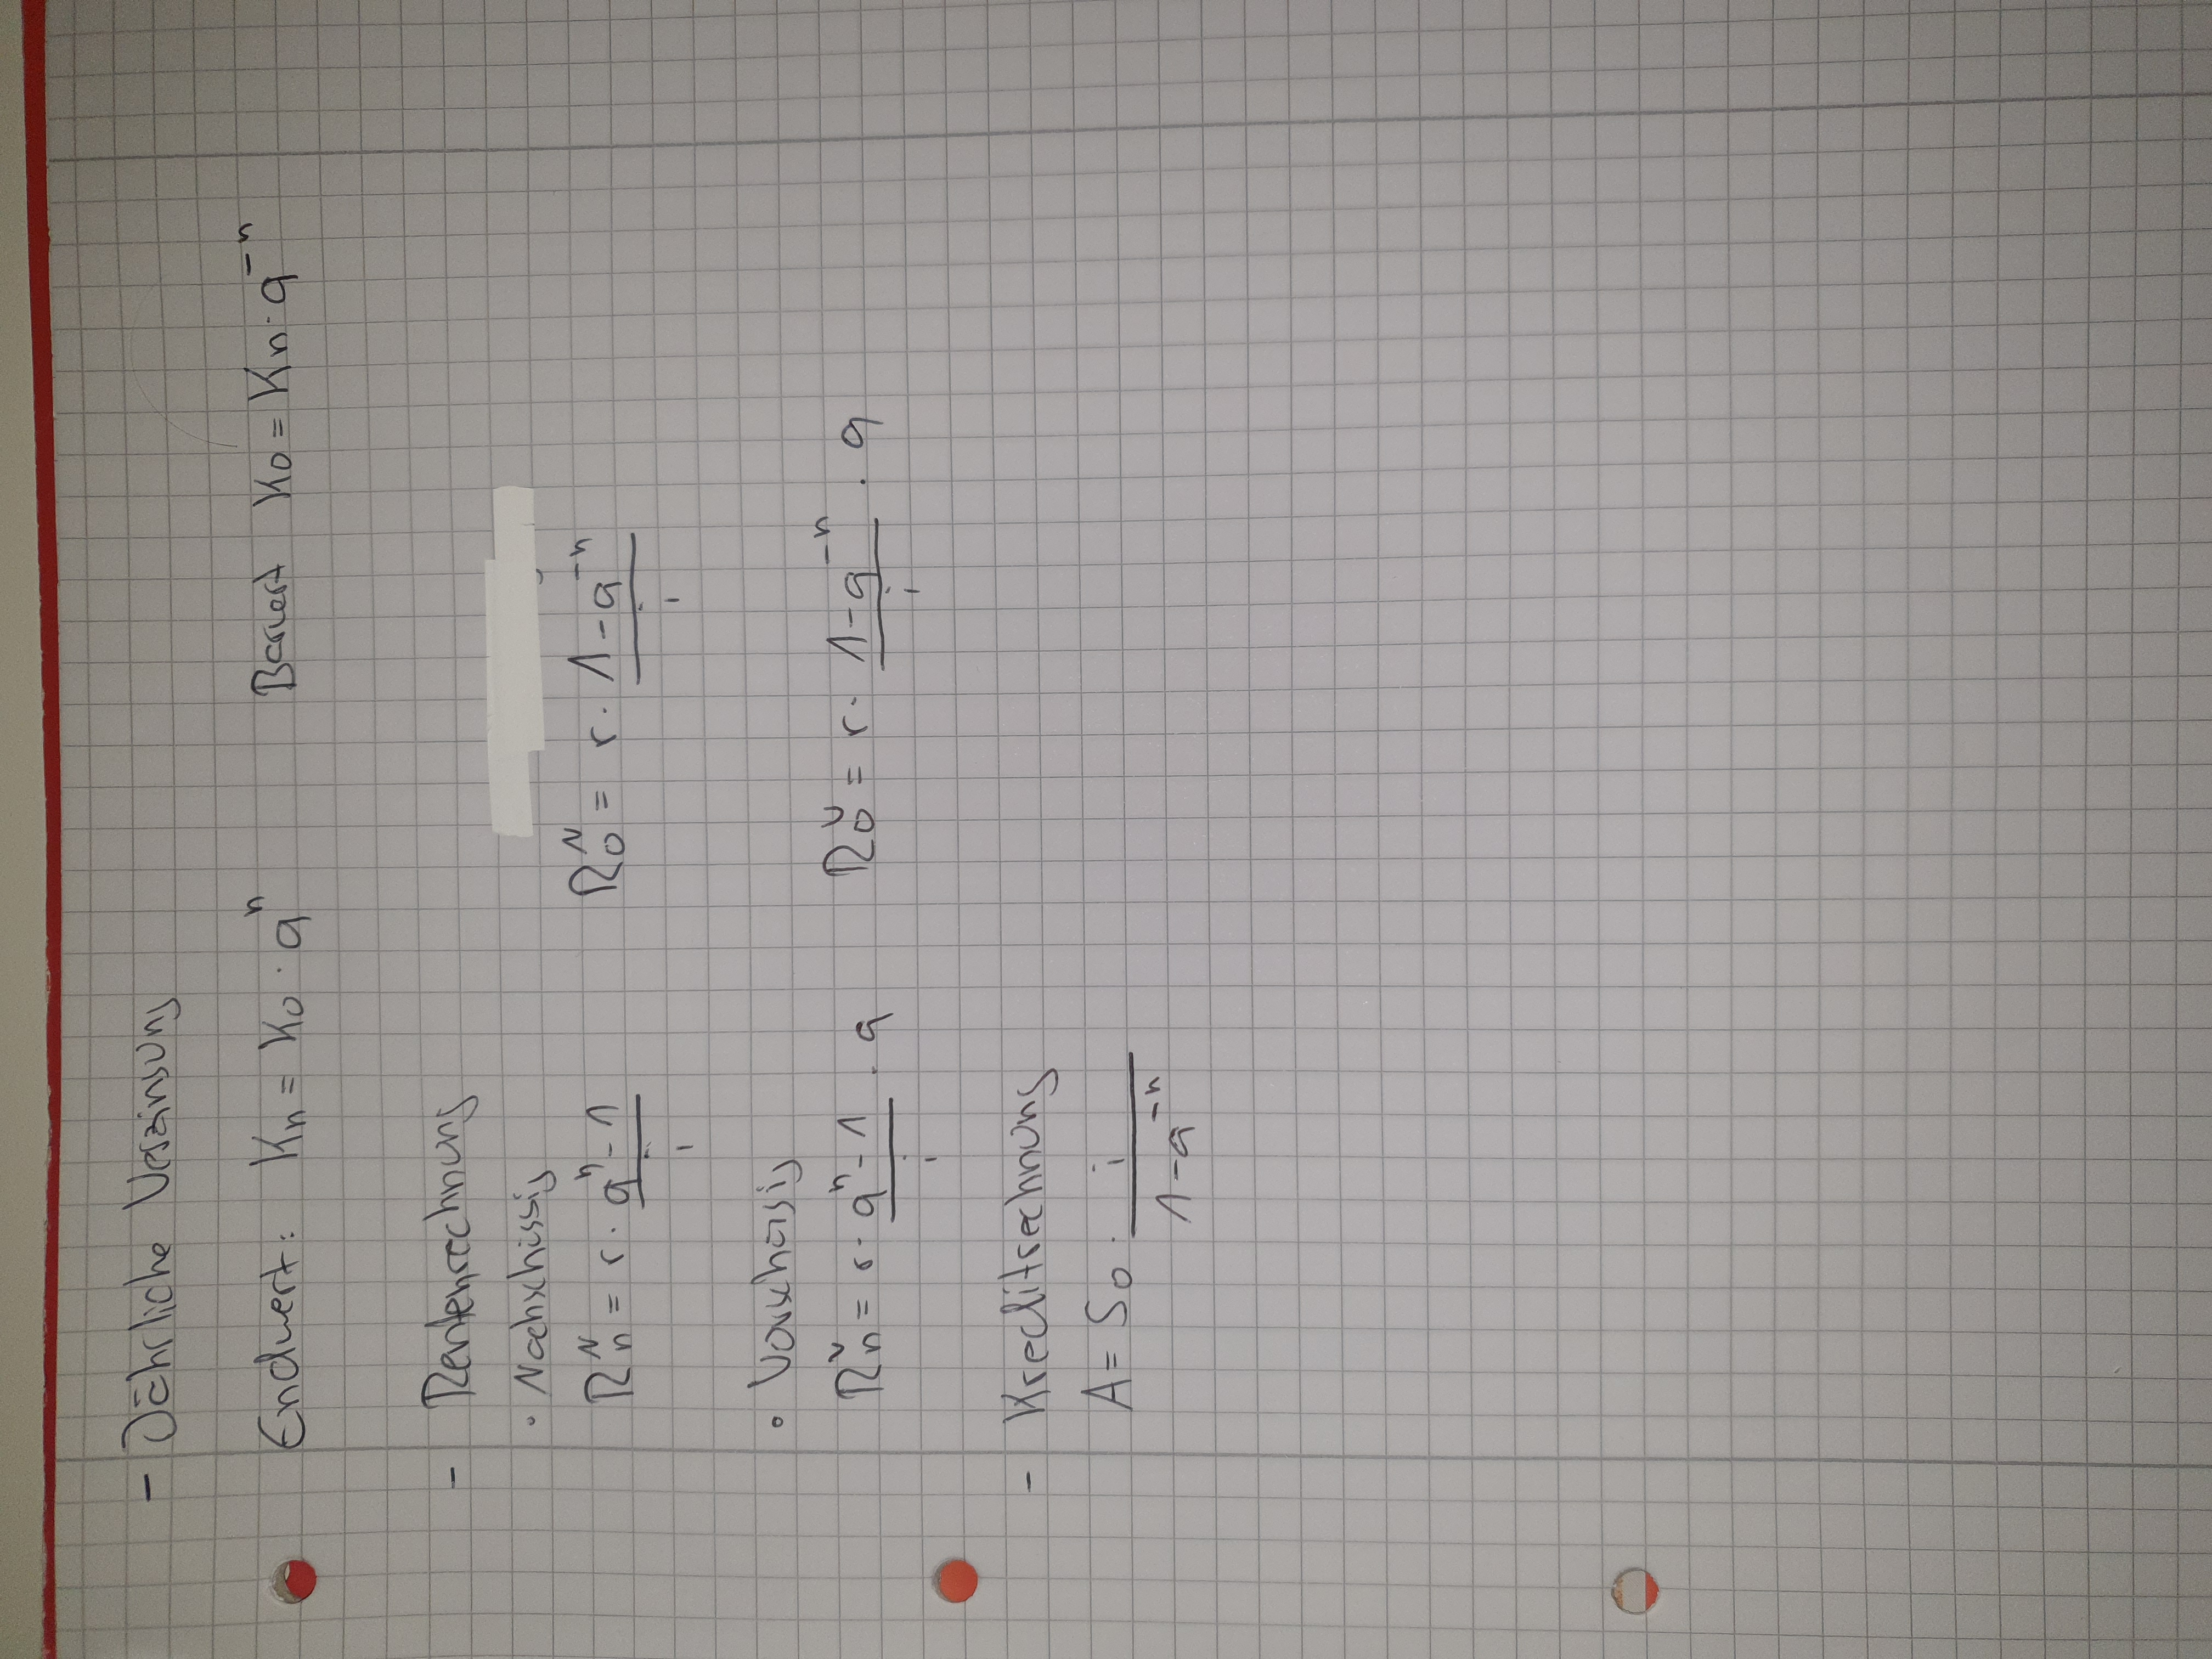 - Jährliche Verzinsung
Endwert: Kn = K0 · qⁿ Barwert K0 = Kn · q⁻ⁿ
- Rentenrechnung
· Nachschüssig
Rₙᴺ = r · (qⁿ - 1)/i R₀ᴺ = r · (1 - q⁻ⁿ)/i
· Vorschüssig
Rₙⱽ = r · (qⁿ - 1)/i · q R₀ⱽ = r · (1 - q⁻ⁿ)/i · q
- Kreditrechnung
A = S0 · i/(1 - q⁻ⁿ)